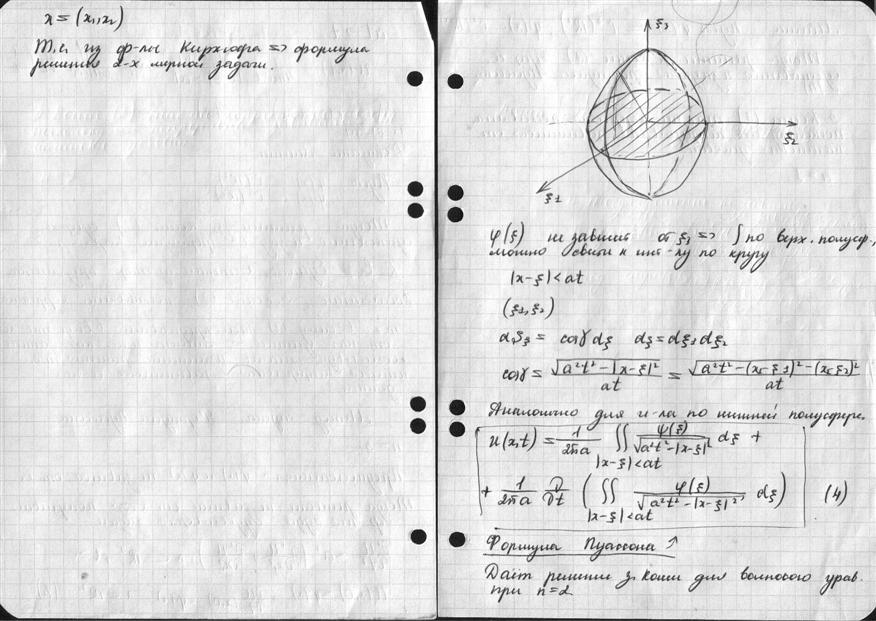 x = (x₁, x₂)
Т.е. из ф-лы Кирхгофа => формула
решения 2-х мерной задачи.
ξ₃
ξ₂
ξ₁
φ(ξ) не зависит от ξ₃ => ∫ по верх. полусф.,
можно свести к инт-лу по кругу
|x-ξ| < at
(ξ₁, ξ₂)
dSξ = cosγ dξ dξ = dξ₁ dξ₂
cosγ = √(a²t² - |x-ξ|²) / at = √(a²t² - (x₁-ξ₁)² - (x₂-ξ₂)²) / at
Аналогично для и-ла по нижней полусфере.
u(x,t) = 1/2πa ∬ ψ(ξ) / √(a²t² - |x-ξ|²) dξ +
|x-ξ| < at
+ 1/2πa ∂/∂t ( ∬ φ(ξ) / √(a²t² - |x-ξ|²) dξ ) (4)
|x-ξ| < at
Формула Пуассона ↑
Даёт решение з. Коши для волнового урав.
при n=2